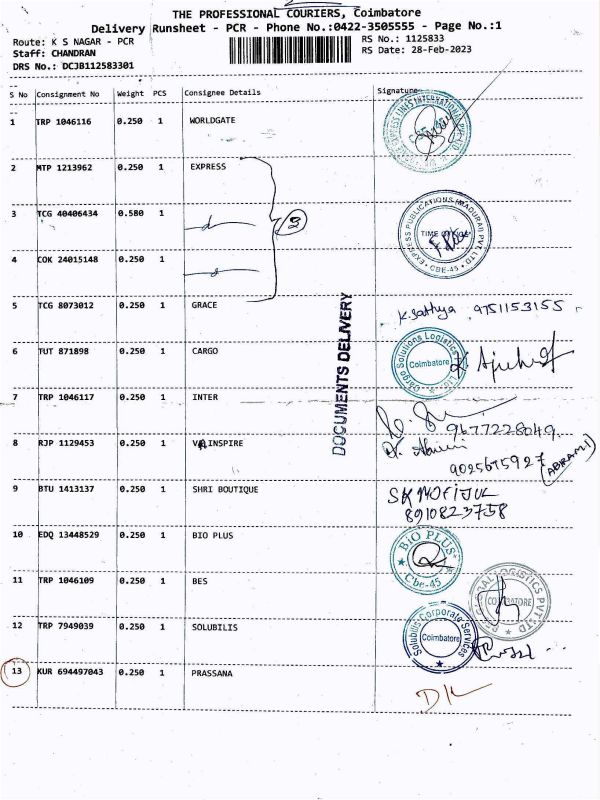 THE PROFESSIONAL COURIERS, Coimbatore
Delivery Runsheet - PCR - Phone No.:0422-3505555 - Page No.:1
Route: K S NAGAR - PCR
RS No.: 1125833
Staff: CHANDRAN
RS Date: 28-Feb-2023
DRS No.: DCJB112583301
S No Consignment No Weight PCS Consignee Details Signature
1 TRP 1046116 0.250 1 WORLDGATE
2 MTP 1213962 0.250 1 EXPRESS
3 TCG 40406434 0.580 1
TIME OFFICE
EXPRESS PUBLICATIONS (MADURAI) PVT LTD
CBE-45
4 COK 24015148 0.250 1
5 TCG 8073012 0.250 1 GRACE K. Sathya 9751153155
DOCUMENTS DELIVERY
6 TUT 871898 0.250 1 CARGO
Cargo Solutions Logistics
Coimbatore
7 TRP 1046117 0.250 1 INTER
9677228049.
8 RJP 1129453 0.250 1 VA INSPIRE
9025675927
(ABRAMI)
9 BTU 1413137 0.250 1 SHRI BOUTIQUE SK MOFIJUL
8910823758
10 EDQ 13448529 0.250 1 BIO PLUS
BIO PLUS
Cbe-45
11 TRP 1046109 0.250 1 BES
12 TRP 7949039 0.250 1 SOLUBILIS
Solubilis Corporate Services
Coimbatore
13 KUR 694497043 0.250 1 PRASSANA